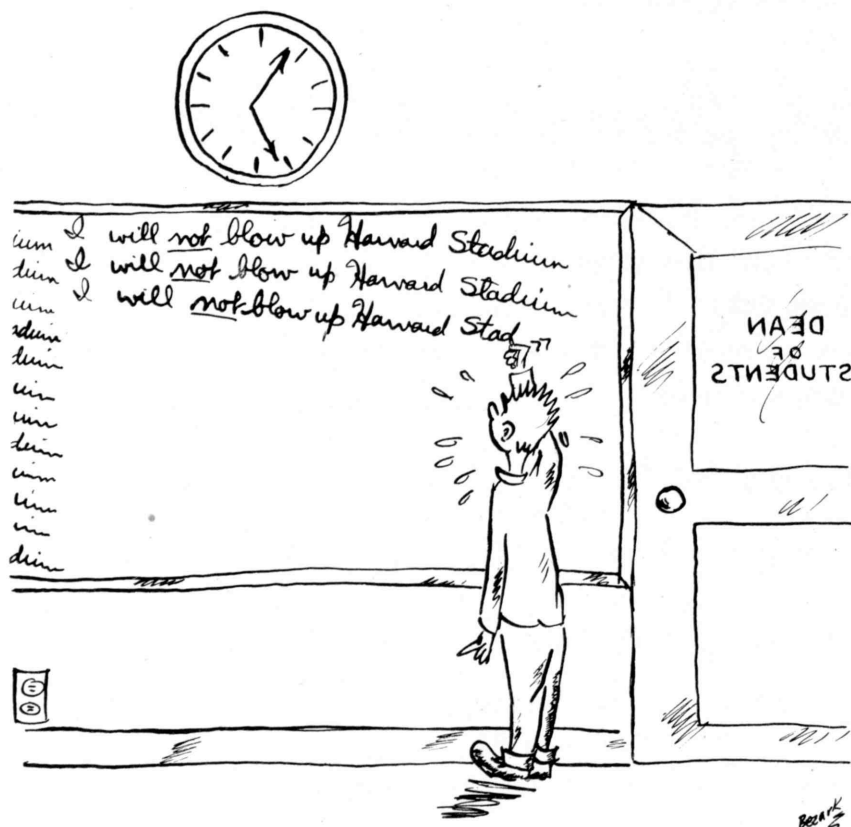 ium I will not blow up Harvard Stadium
dium I will not blow up Harvard Stadium
ium I will not blow up Harvard Stad
adium
tium
ium
ium
tium
ium
ium
im
dium
DEAN
OF
STUDENTS
Bezark